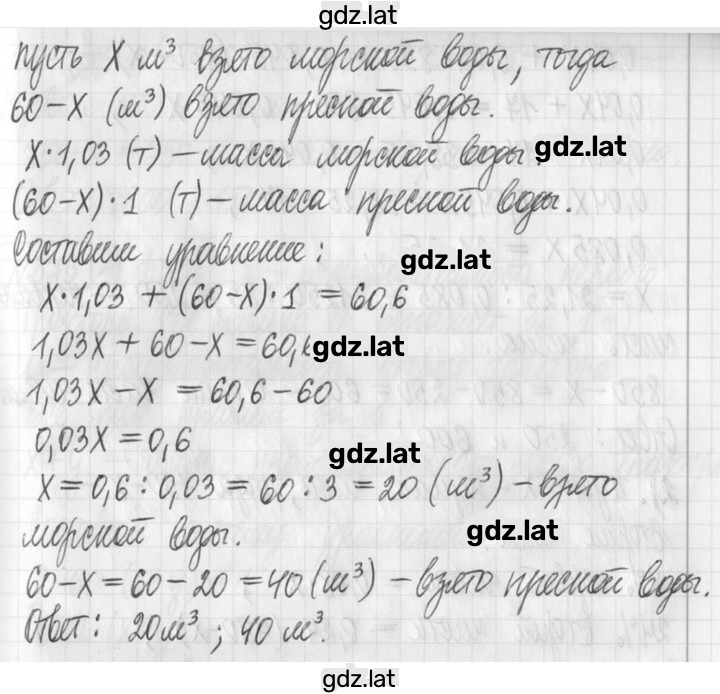 gdz.lat
пусть X м³ взято морской воды, тогда
60-X (м³) взято пресной воды.
X·1,03 (т) – масса морской воды. gdz.lat
(60-X)·1 (т) – масса пресной воды.
Составим уравнение: gdz.lat
X·1,03 + (60-X)·1 = 60,6
1,03X + 60 - X = 60,6 gdz.lat
1,03X - X = 60,6 - 60
0,03X = 0,6 gdz.lat
X = 0,6 : 0,03 = 60 : 3 = 20 (м³) – взято
морской воды. gdz.lat
60 - X = 60 - 20 = 40 (м³) – взято пресной воды.
Ответ: 20 м³; 40 м³.
gdz.lat